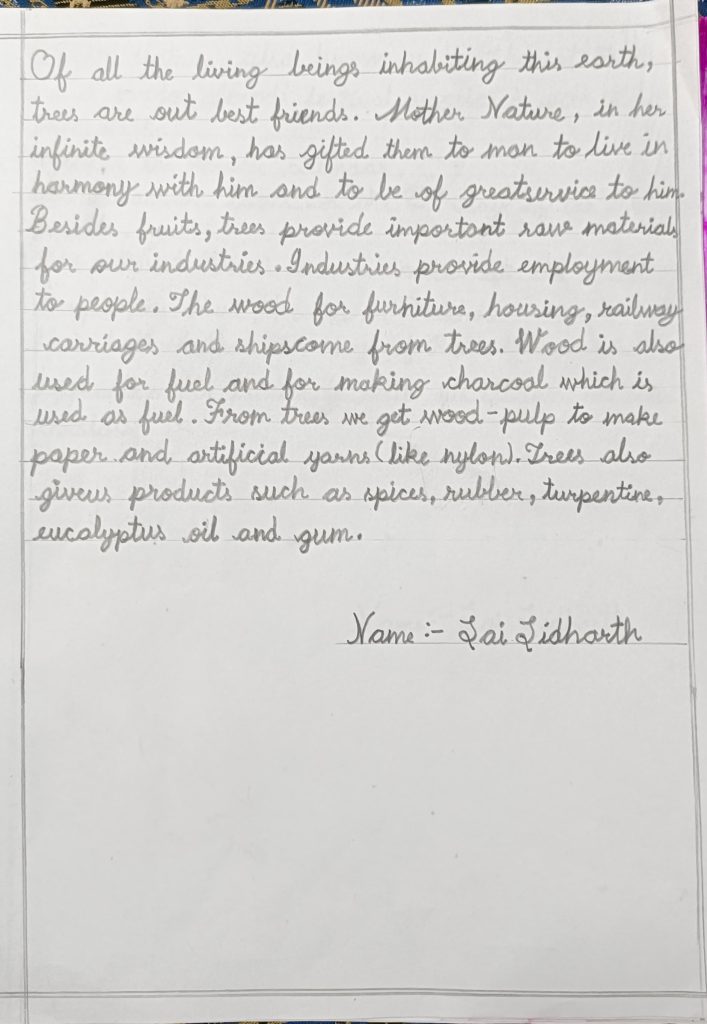 Of all the living beings inhabiting this earth,
trees are out best friends. Mother Nature, in her
infinite wisdom, has gifted them to man to live in
harmony with him and to be of greatservice to him.
Besides fruits, trees provide important raw materials
for our industries. Industries provide employment
to people. The wood for furniture, housing, railway
carriages and shipscome from trees. Wood is also
used for fuel and for making charcoal which is
used as fuel. From trees we get wood-pulp to make
paper and artificial yarns (like nylon). Trees also
giveus products such as spices, rubber, turpentine,
eucalyptus oil and gum.
Name :- Sai Sidharth